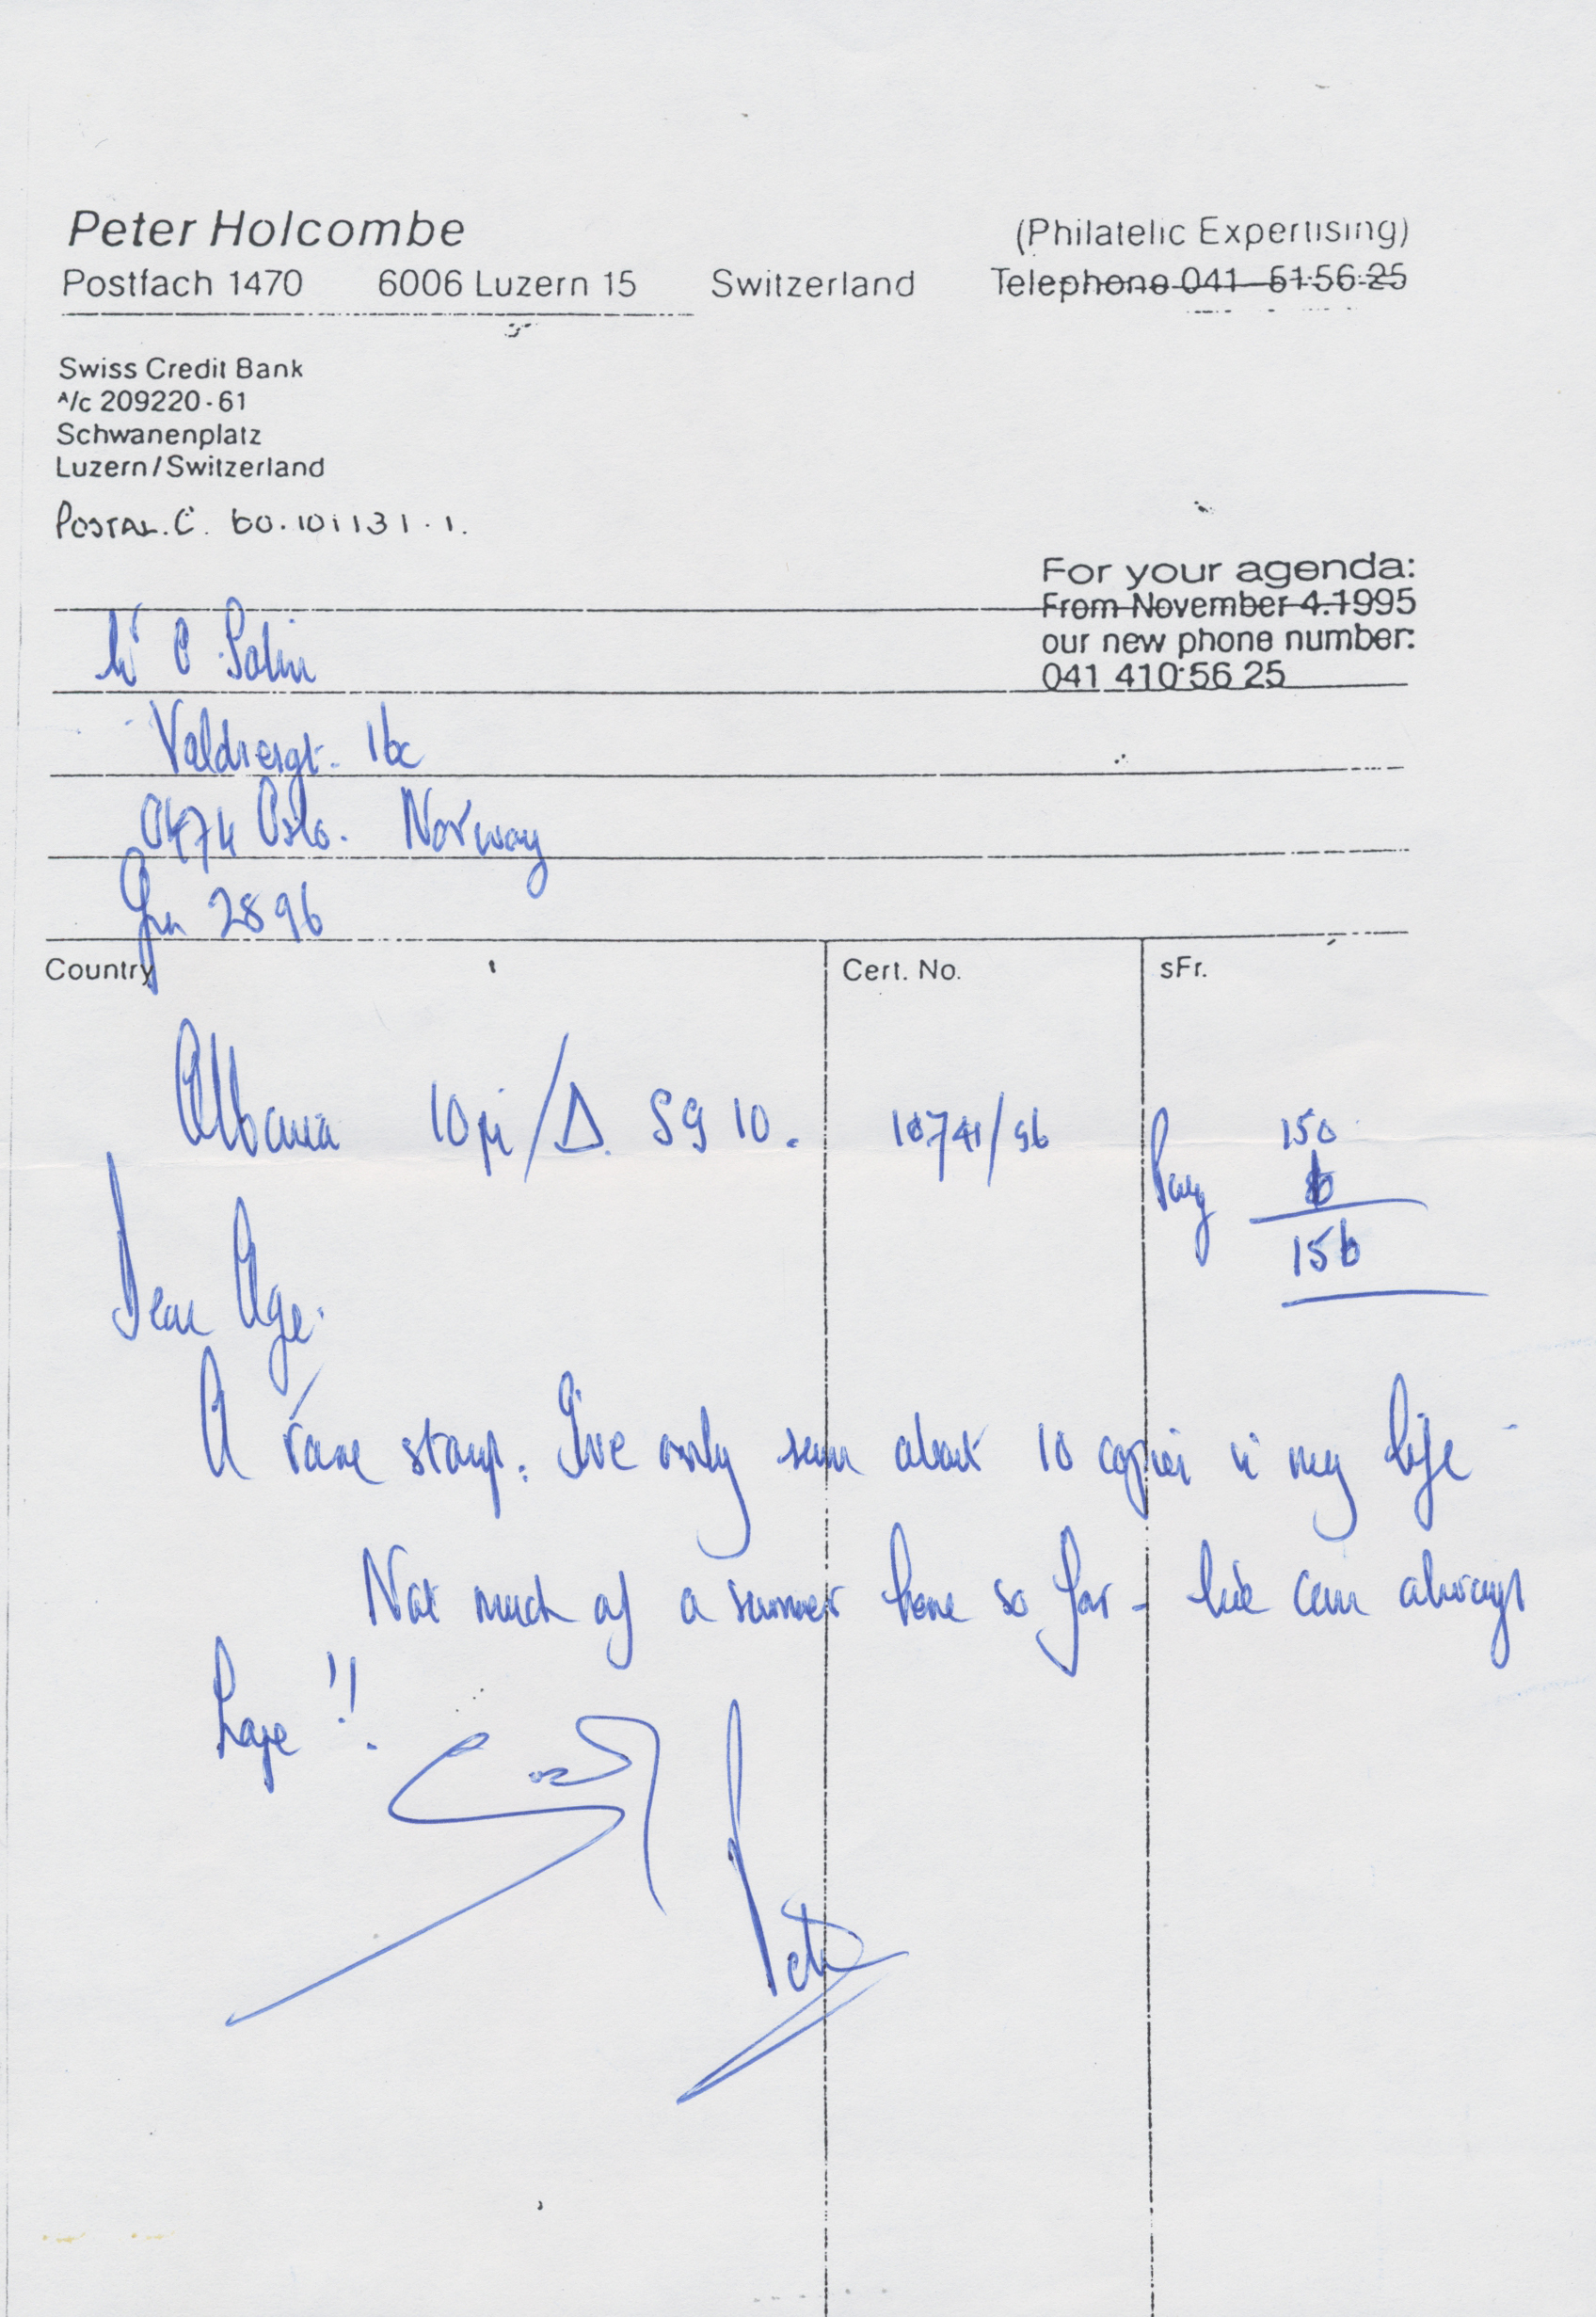 Peter Holcombe
(Philatelic Expertising)
Postfach 1470 6006 Luzern 15 Switzerland
Telephone 041-51 56 25
Swiss Credit Bank
A/c 209220-61
Schwanenplatz
Luzern/Switzerland
POSTAL.C. 60.101131.1.
For your agenda:
From November 4.1995
our new phone number:
041 410 56 25
Valdresgt. 16c
0474 Oslo. Norway
28 96
Country
Cert. No.
sFr.
Albania 10 pi/Δ. SG 10. 10741/96
150
6
Pay
156
Dear Age.
A rare stamp. I've only seen about 10 copies in my life
Not much of a summer here so far - We can always
hope !!
Peter